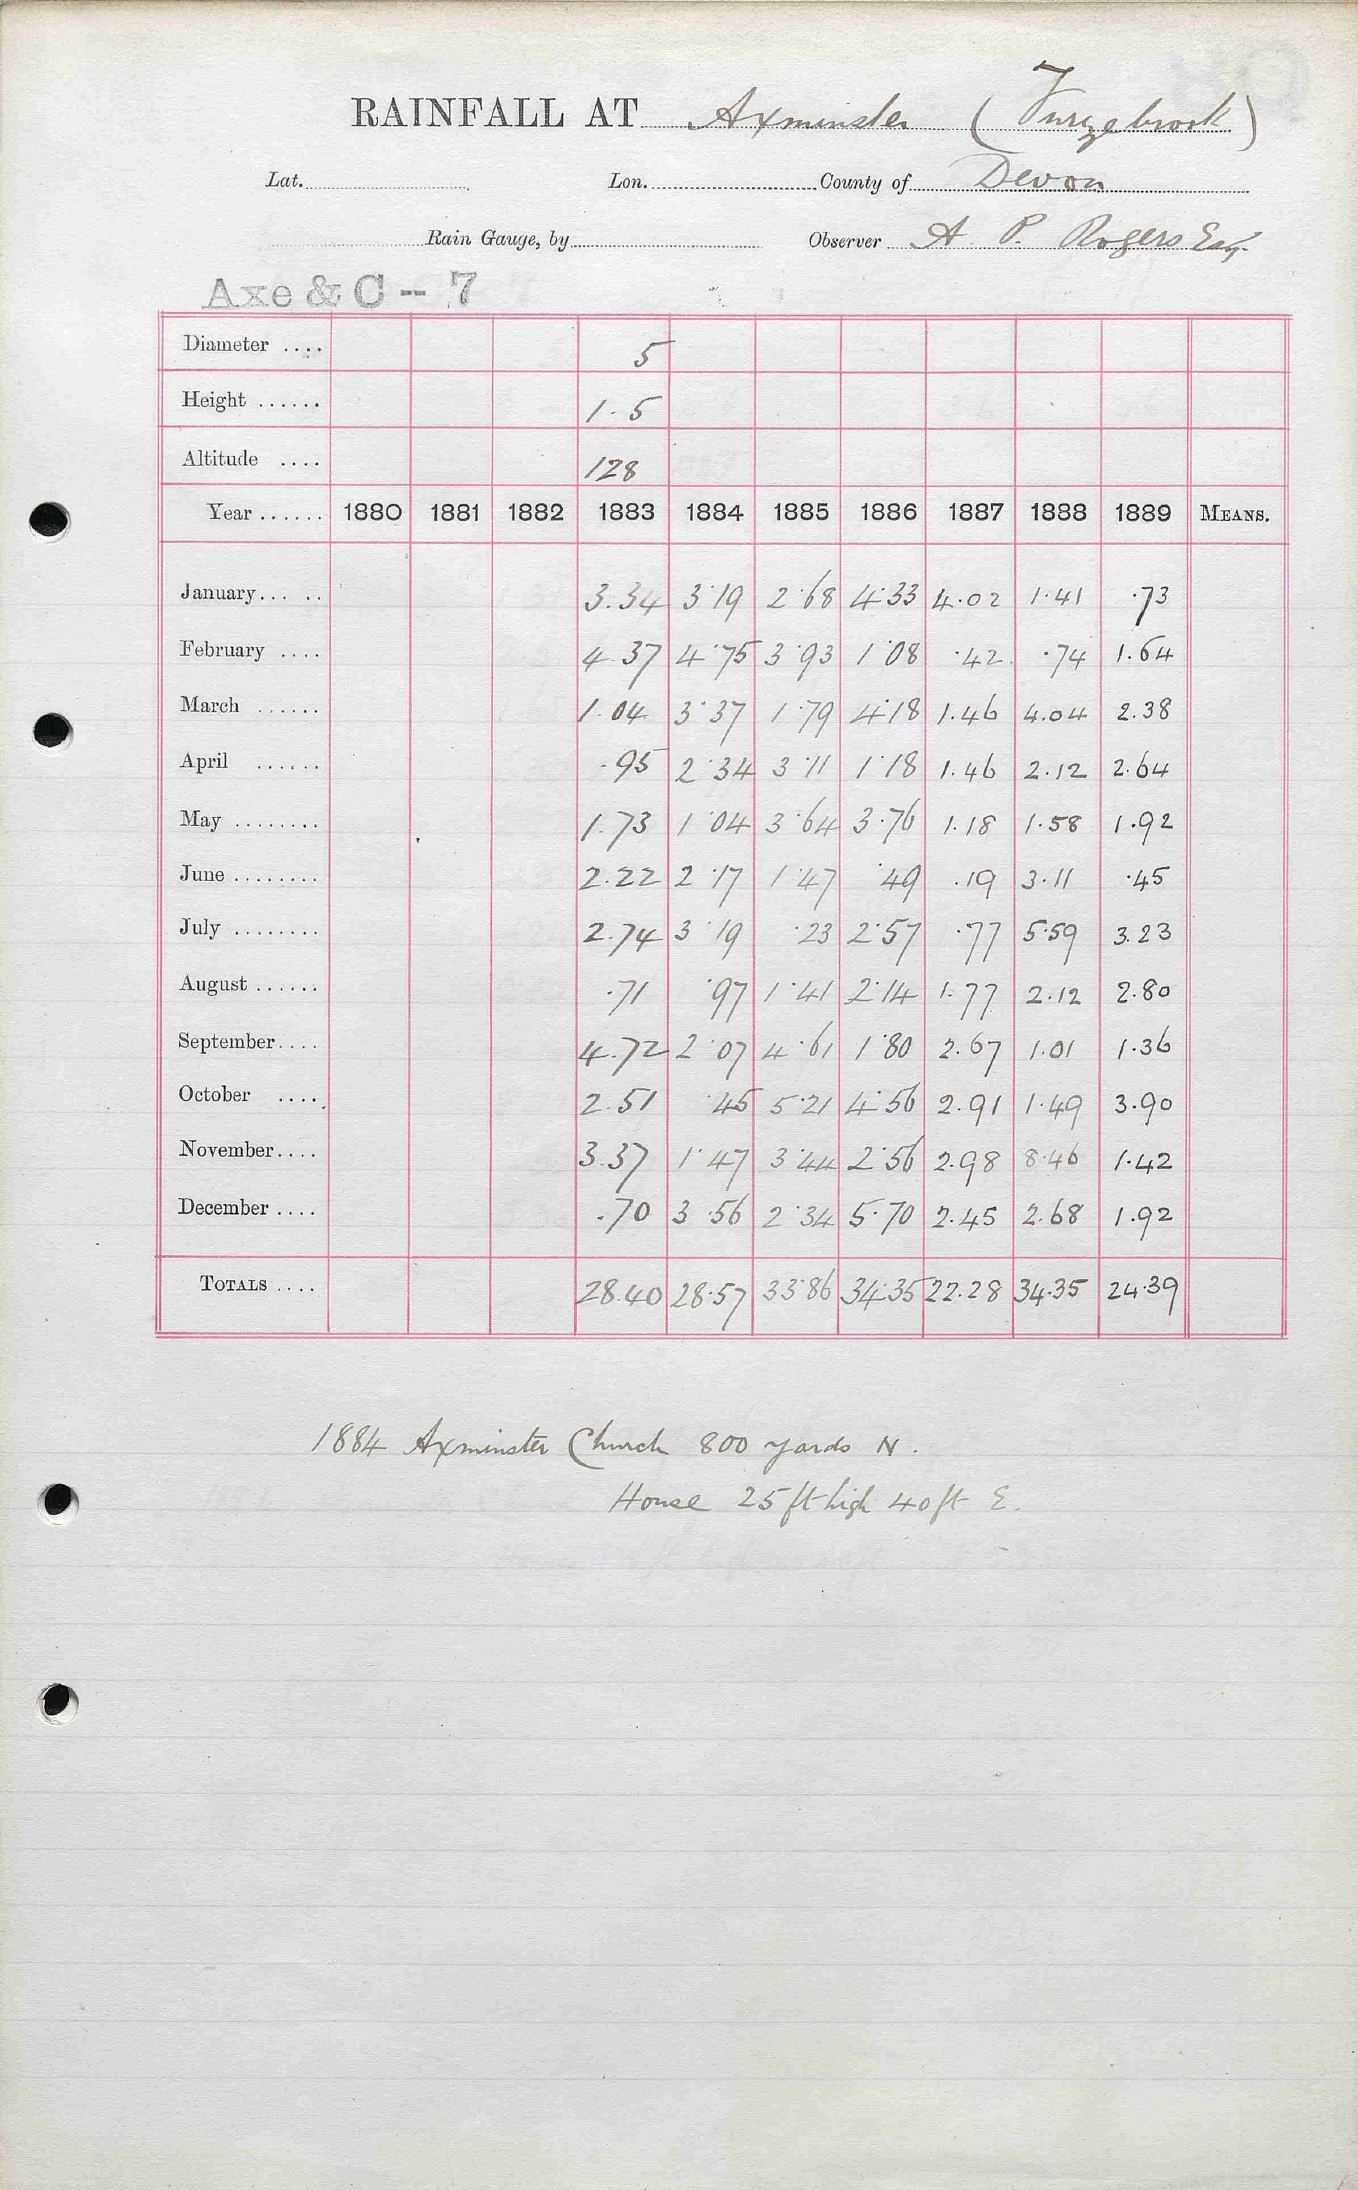 RAINFALL AT Axminster (Furzebrook)
Lat. Lon. County of Devon
Rain Gauge, by Observer A. P. Rogers Esq.
Axe & C - 7
Diameter .... 5
Height ...... 1.5
Altitude .... 128
Year ...... 1880 1881 1882 1883 1884 1885 1886 1887 1888 1889 MEANS.
January... .. 3.34 3.19 2.68 4.33 4.02 1.41 .73
February .... 4.37 4.75 3.93 1.08 .42 .74 1.64
March ...... 1.04 3.37 1.79 4.18 1.46 4.04 2.38
April ...... .95 2.34 3.11 1.18 1.46 2.12 2.64
May ........ 1.73 1.04 3.64 3.76 1.18 1.58 1.92
June ........ 2.22 2.17 1.47 .49 .19 3.11 .45
July ........ 2.74 3.19 .23 2.57 .77 5.59 3.23
August ...... .71 .97 1.41 2.14 1.77 2.12 2.80
September.... 4.72 2.07 4.61 1.80 2.67 1.01 1.36
October .... 2.51 .45 5.21 4.56 2.91 1.49 3.90
November.... 3.37 1.47 3.44 2.56 2.98 8.46 1.42
December .... .70 3.56 2.34 5.70 2.45 2.68 1.92
TOTALS .... 28.40 28.57 33.86 34.35 22.28 34.35 24.39
1884 Axminster Church 800 yards N.
House 25 ft high 40 ft E.